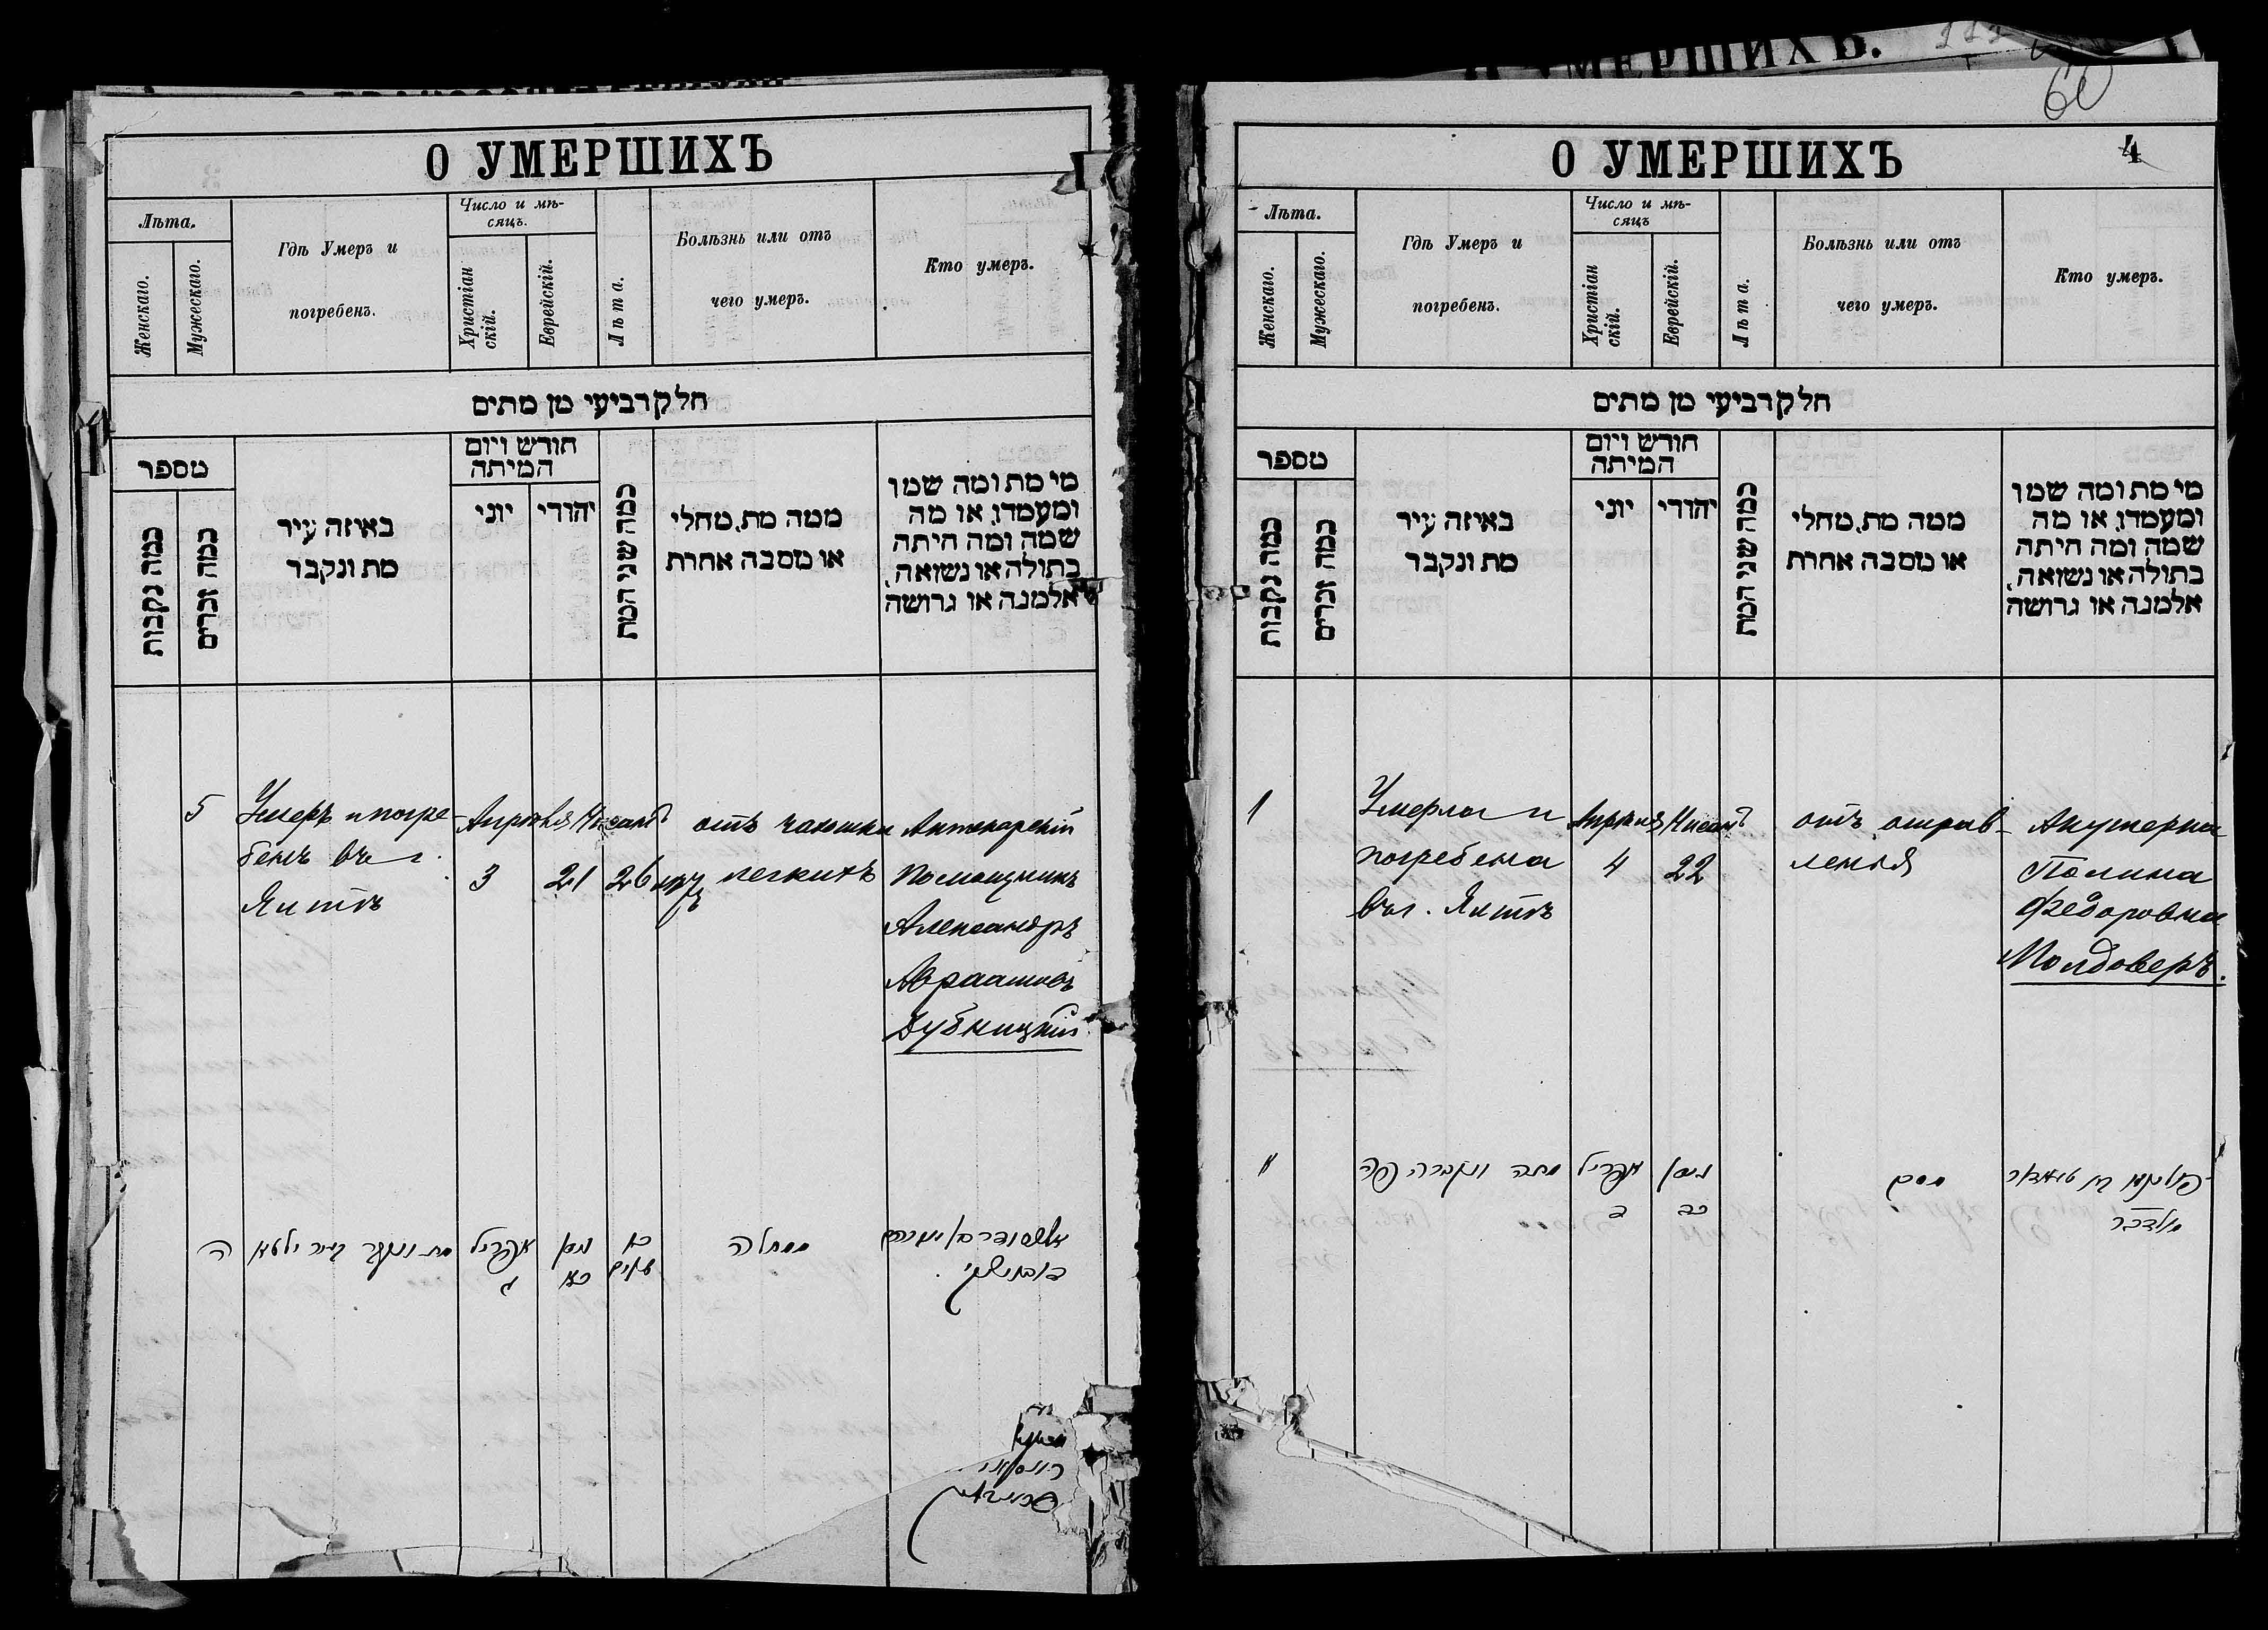 О УМЕРШИХЪ
Лѣта.
Женскаго.
Мужескаго.
Гдѣ Умеръ и
погребенъ.
Число и мѣ-
сяцъ.
Христіан
скій.
Еврейскій.
Лѣта.
Болѣзнь или отъ
чего умеръ.
Кто умеръ.
חלק רביעי מן מתים
מספר
כמה נקבות
כמה זכרים
באיזה עיר
מת ונקבר
חודש ויום
המיתה
יוני
יהודי
כמה שני המת
ממה מת, מחלי
או מסבה אחרת
מי מת ומה שמו
ומעמדו, או מה
שמה ומה היתה
בתולה או נשואה,
אלמנה או גרושה
5
Умеръ и погре-
бенъ въ г.
Ялтѣ
Апрѣля
3
Нисанъ
21
26
отъ чахотки
легкихъ
Аптекарскій
Помощникъ
Александръ
Авраамовъ
Дубницкій
ה
מת ונקבר בעיר ילטא
אפריל
ג
ניסן
כא
כו
שנים
ממחלה
О УМЕРШИХЪ
60
4
Лѣта.
Женскаго.
Мужескаго.
Гдѣ Умеръ и
погребенъ.
Число и мѣ-
сяцъ.
Христіан
скій.
Еврейскій.
Лѣта.
Болѣзнь или отъ
чего умеръ.
Кто умеръ.
חלק רביעי מן מתים
מספר
כמה נקבות
כמה זכרים
באיזה עיר
מת ונקבר
חודש ויום
המיתה
יוני
יהודי
כמה שני המת
ממה מת, מחלי
או מסבה אחרת
מי מת ומה שמו
ומעמדו, או מה
שמה ומה היתה
בתולה או נשואה,
אלמנה או גרושה
1
Умерла и
погребена
въ г. Ялтѣ
Апрѣля
4
Нисанъ
22
отъ отрав-
ленія
Акушерка
Полина
Федоровна
Молдоверъ.
א
מתה ונקברה פה
אפריל
ד
ניסן
כב
מסם
מולדבר